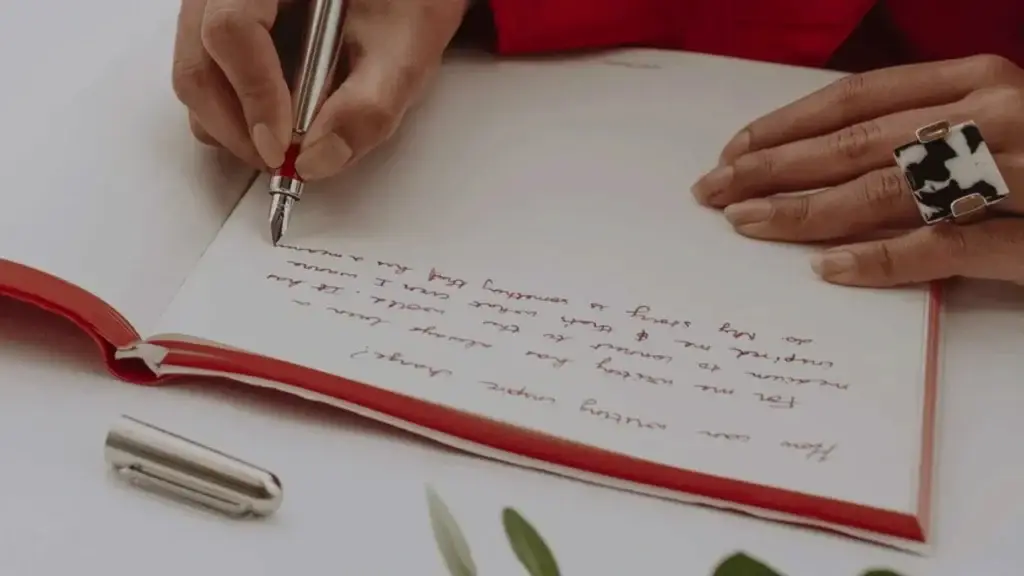 How can writing inspire change?
For me writing has always been a
medium to connect to the world. It has
inspired me & thats what even I wanna
do My story is something that has a